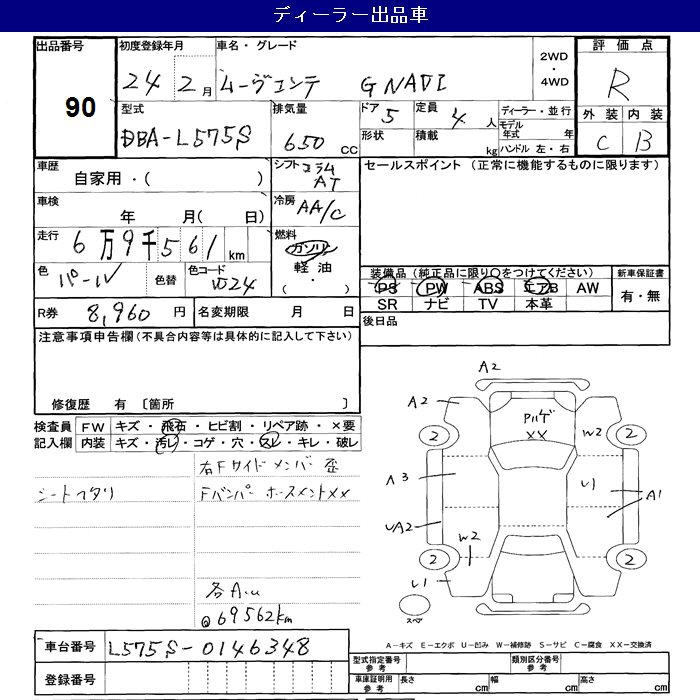 ディーラー出品車
出品番号
90
初度登録年月
24 2月
車名・グレード
ムーヴコンテ G NAVI
2WD
・
4WD
評価点
R
外装 内装
C B
型式
DBA-L575S
排気量
650 CC
ドア 5
定員 4 人
ディーラー・並行
モデル年式 年
形状
積載 kg
ハンドル 左・右
車歴
自家用・( )
シフト コラムAT
セールスポイント (正常に機能するものに限ります)
車検
年 月( 日)
冷房 AA/C
走行 6万9千561km
燃料
ガソリン
軽油
( ・ )
色 パール
色替
色コード W24
装備品(純正品に限り○をつけてください)
新車保証書
PS PW ABS エアB AW
有・無
SR ナビ TV 本革
R券 8,960 円
名変期限 月 日
後日品
注意事項申告欄(不具合内容等は具体的に記入して下さい)
修復歴 有 〔箇所 〕
検査員 FW キズ・飛石・ヒビ割・リペア跡・×要
記入欄 内装 キズ・汚レ・コゲ・穴・スレ・キレ・破レ
右Fサイドメンバー歪
シートヘタリ
Fバンパー ホースメントXX
各A.u
@69562km
A2
A2
Pハゲ
XX
2 W2 2
A3
U1
A1
UA2
W2
2 2
U1
スペア
A-キズ E-エクボ U-凹み W-補修跡 S-サビ C-腐食 XX-交換済
車台番号 L575S-0146348
登録番号
型式指定番号 参考
類別区分番号 参考
車庫証明用 参考
長さ cm
幅 cm
高さ cm